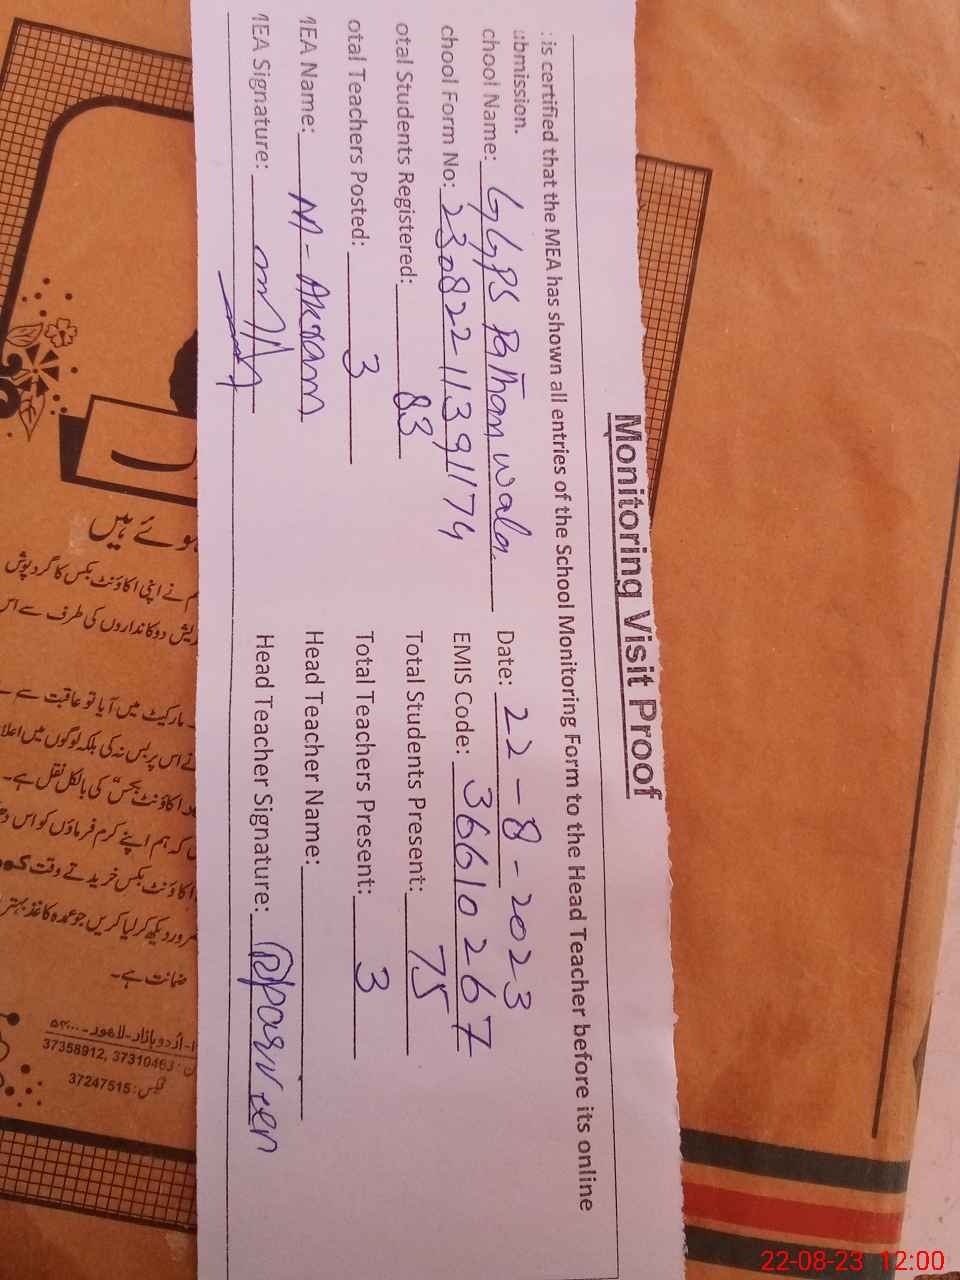 Monitoring Visit Proof
is certified that the MEA has shown all entries of the School Monitoring Form to the Head Teacher before its online
ubmission.
chool Name: GGPS Pathan wala Date: 22-8-2023
chool Form No: 23082211391174 EMIS Code: 36610267
otal Students Registered: 83 Total Students Present: 75
otal Teachers Posted: 3 Total Teachers Present: 3
MEA Name: M-Akram Head Teacher Name:
MEA Signature: Head Teacher Signature: parveen
ہوئے ہیں
نے اپنی اکاؤنٹ بکس کا گرد پوش
دوکانداروں کی طرف سے اس
مارکیٹ میں آیا تو عاقبت سے
نے اس پر بس نہ کی بلکہ لوگوں میں اعلا
اکاؤنٹ بکس" کی بالکل نقل ہے۔
کہ ہم اپنے کرم فرماؤں کو اس
اکاؤنٹ بکس خریدتے وقت
ضرور دیکھ کر لیا کریں جو عمدہ کاغذ بہتر
ضمانت ہے۔
اردو بازار - لاہور - ۵۴۰۰۰
37358912, 37310463 :
فیکس : 37247515
22-08-23 12:00